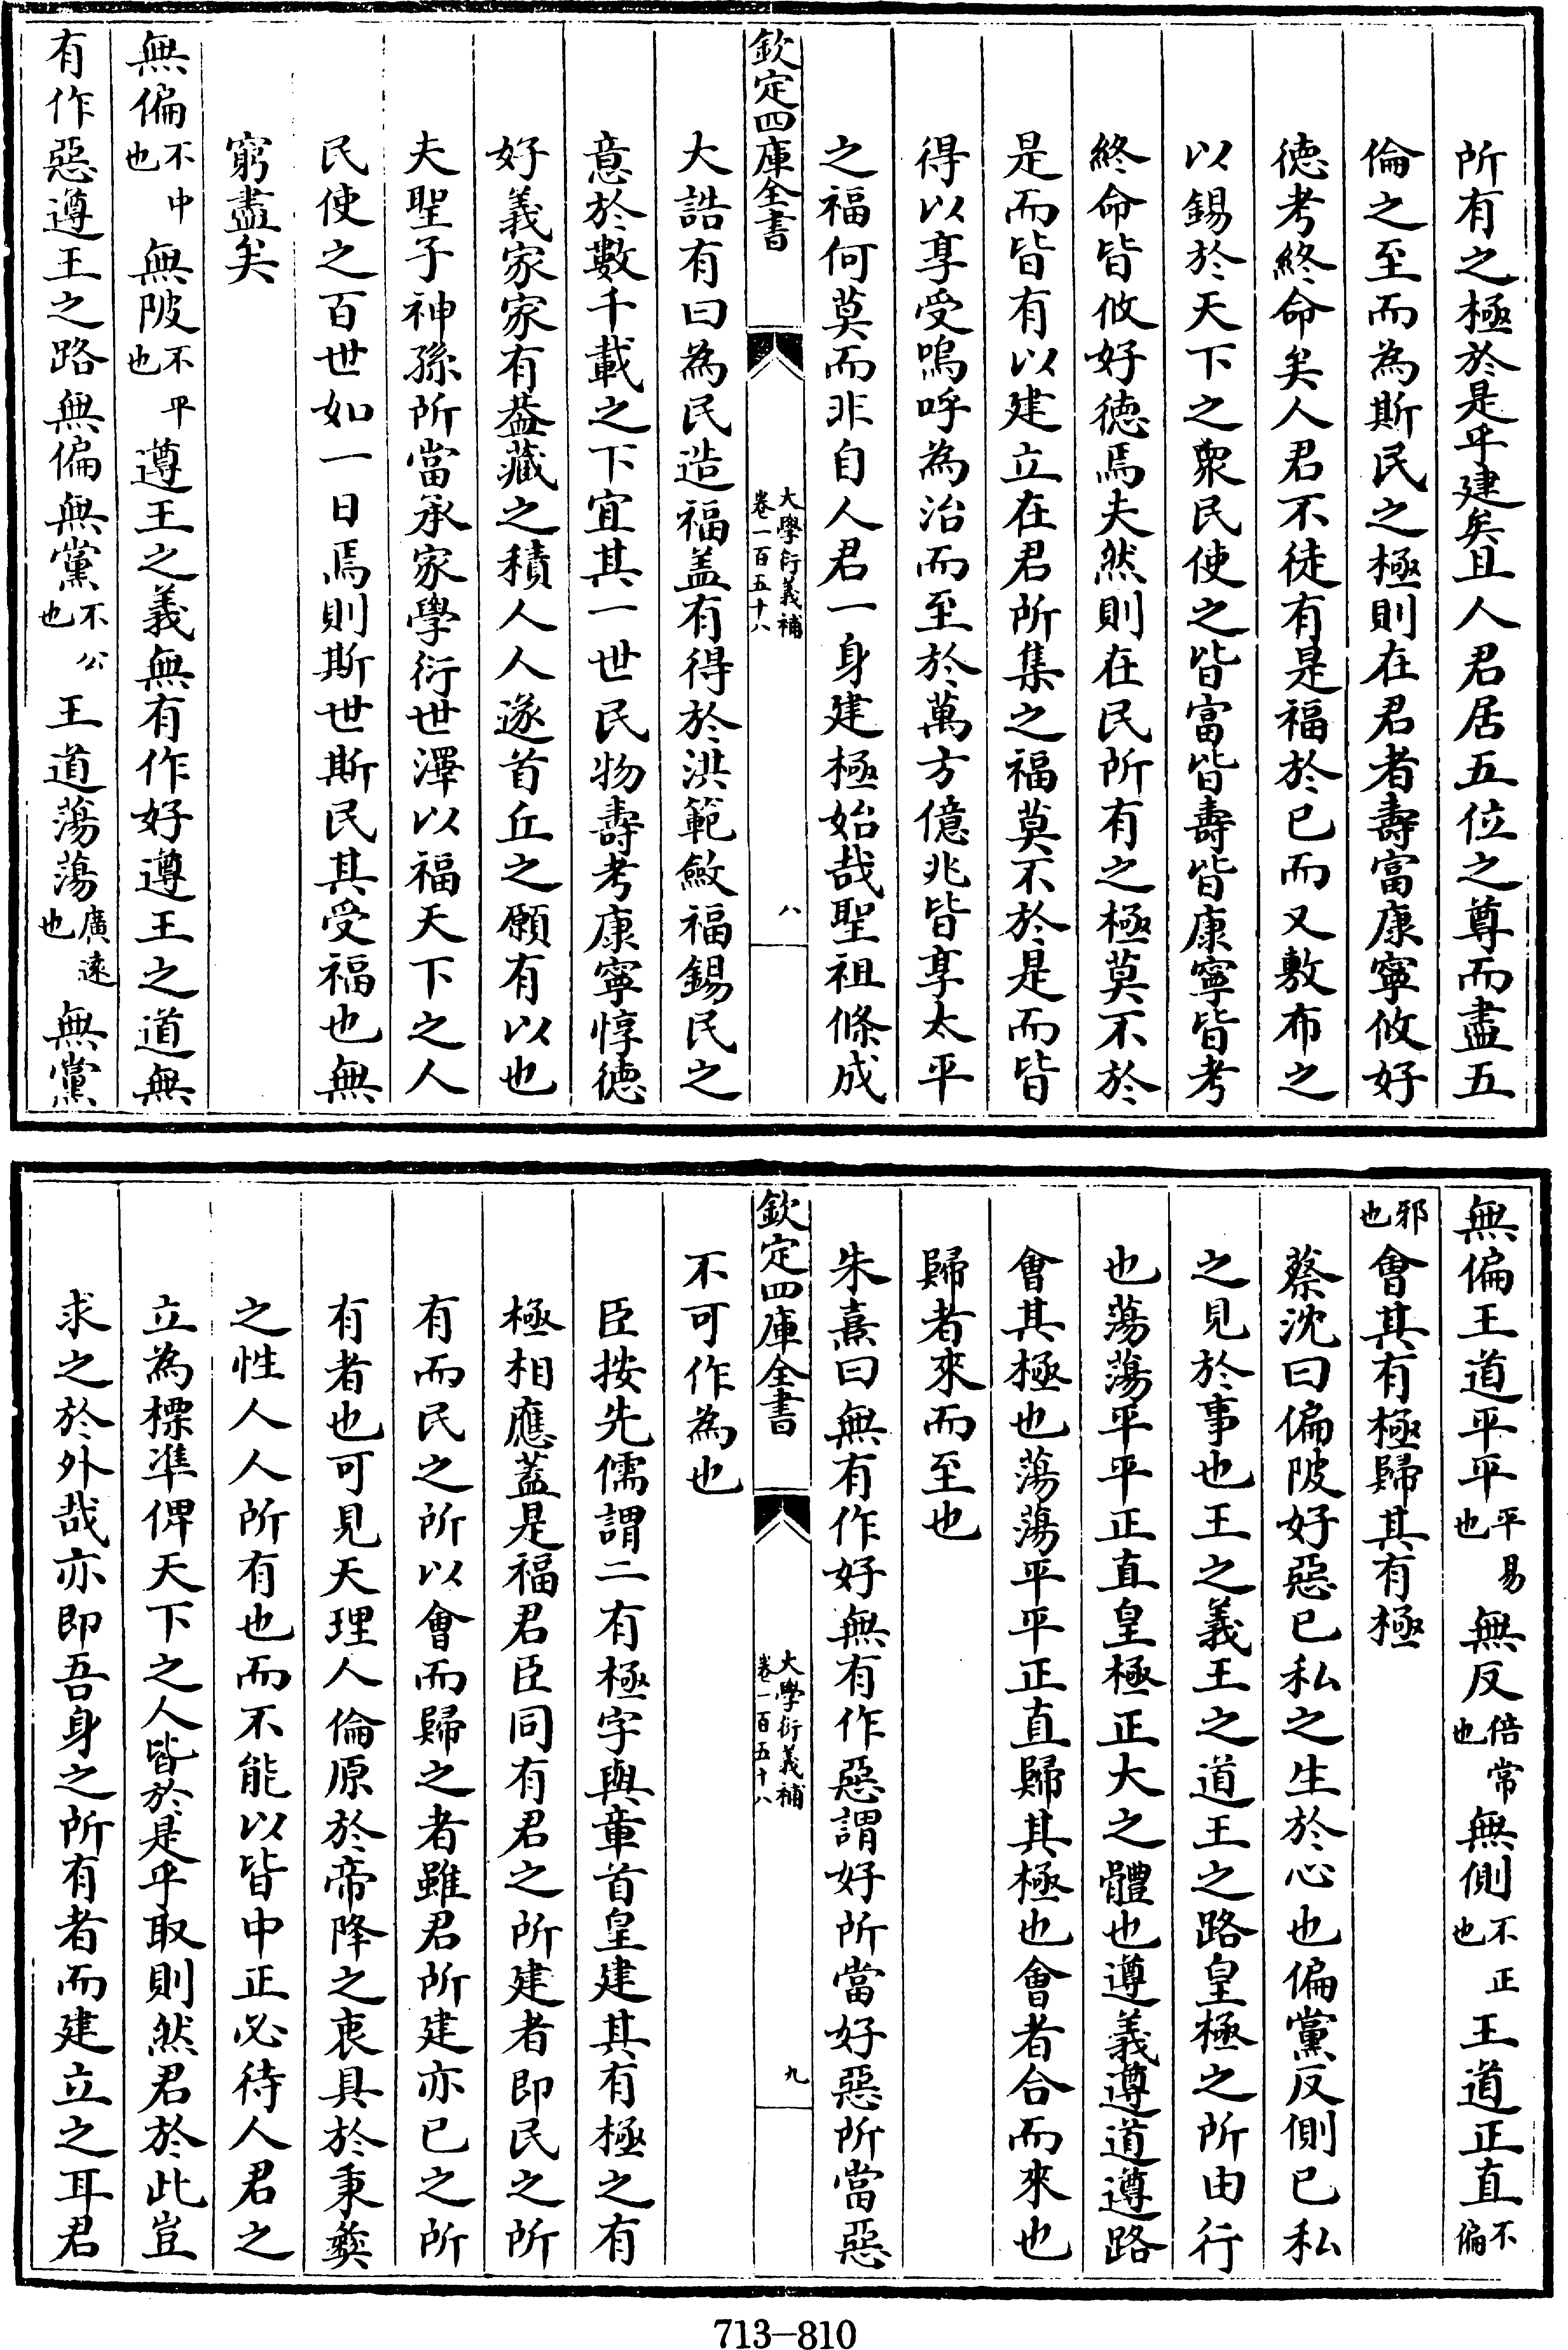 所有之極於是乎建矣且人君居五位之尊而盡五
倫之至而為斯民之極則在君者壽富康寧攸好
德考終命矣人君不徒有是福於已而又敷布之
以錫於天下之衆民使之皆富皆壽皆康寧皆考
終命皆攸好德焉夫然則在民所有之極莫不於
是而皆有以建立在君所集之福莫不於是而皆
得以享受嗚呼為治而至於萬方億兆皆享太平
之福何莫而非自人君一身建極始哉聖祖條成
欽定四庫全書
大學衍義補
卷一百五十八
八
大誥有曰為民造福盖有得於洪範斂福錫民之
意於數千載之下宜其一世民物壽考康寧惇德
好義家家有葢藏之積人人遂首丘之願有以也
夫聖子神孫所當承家學衍世澤以福天下之人
民使之百世如一日焉則斯世斯民其受福也無
窮盡矣
無偏不中也無陂不平也遵王之義無有作好遵王之道無
有作惡遵王之路無偏無黨不公也王道蕩蕩廣遠也無黨
無偏王道平平平易也無反倍常也無側不正也王道正直不偏
邪也會其有極歸其有極
蔡沈曰偏陂好惡已私之生於心也偏黨反側已私
之見於事也王之義王之道王之路皇極之所由行
也蕩蕩平平正直皇極正大之體也遵義遵道遵路
會其極也蕩蕩平平正直歸其極也會者合而來也
歸者來而至也
朱熹曰無有作好無有作惡謂好所當好惡所當惡
欽定四庫全書
大學衍義補
卷一百五十八
九
不可作為也
臣按先儒謂二有極字與章首皇建其有極之有
極相應蓋是福君臣同有君之所建者即民之所
有而民之所以會而歸之者雖君所建亦已之所
有者也可見天理人倫原於帝降之衷具於秉彝
之性人人所有也而不能以皆中正必待人君之
立為標準俾天下之人皆於是乎取則然君於此豈
求之於外哉亦即吾身之所有者而建立之耳君
713-810